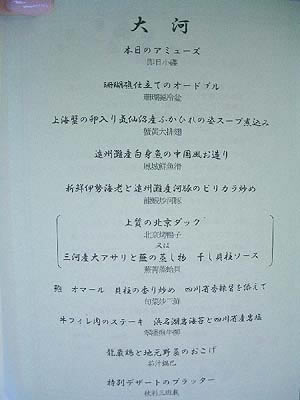 大河
本日のアミューズ
即日小碟
珊瑚礁仕立てのオードブル
珊瑚礁冷盆
上海蟹の卵入り気仙沼産ふかひれの姿スープ煮込み
蟹黄大排翅
遠州灘産白身魚の中国風お造り
鳳城鮮魚滑
新鮮伊勢海老と遠州灘産河豚のピリカラ炒め
龍蝦炒河豚
上質の北京ダック
北京烤鴨子
又は
三河産大アサリと蕪の蒸し物 干し貝柱ソース
蕪菁蒸蛤貝
鮑 オマール 貝柱の香り炒め 四川省香辣醤を添えて
旬菜炒三鮮
牛フィレ肉のステーキ 浜名湖岩海苔と四川省産岩塩
龍巌鶏と地元野菜のおこげ
茄汁鍋巴
特別デザートのプラッター